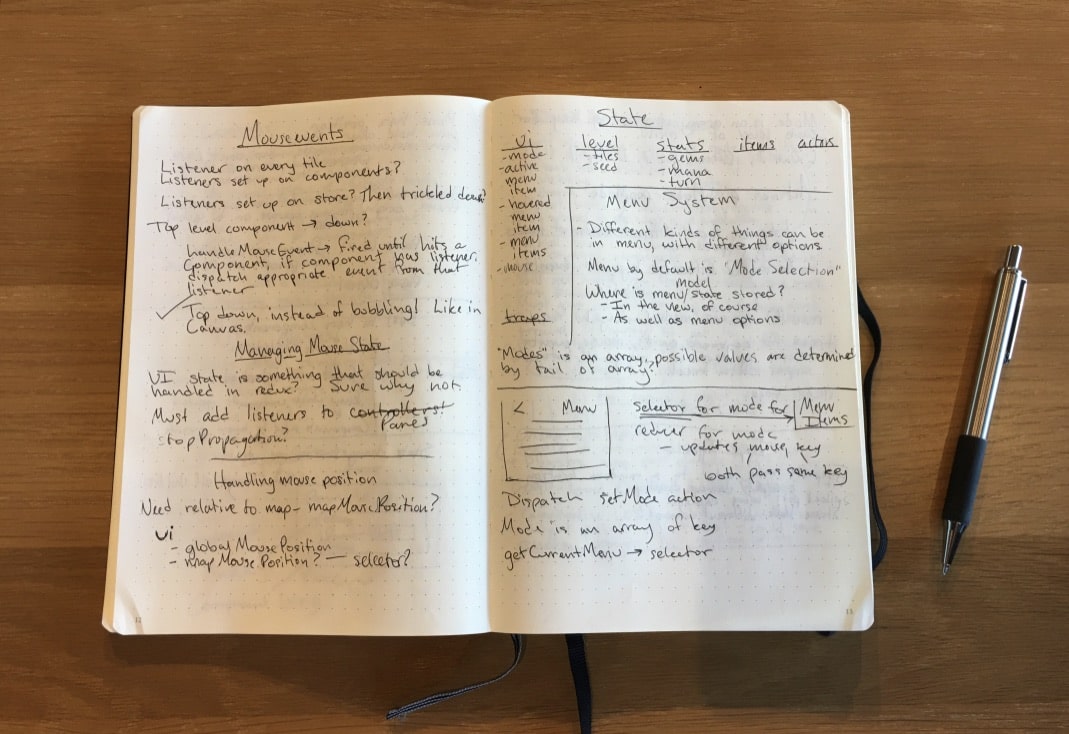 Mouse events
Listener on every tile
Listeners set up on components?
Listeners set up on store? Then trickled down?
Top level component → down?
handleMouseEvent → Fired until hits a
Component, if component has listener,
dispatch appropriate event from that
listener
Top down, instead of bubbling! Like in
Canvas.
Managing Mouse State
UI state is something that should be
handled in redux? Sure why not.
Must add listeners to controllers!
Panes
stopPropagation?
Handling mouse position
Need relative to map - mapMousePosition?
ui
- globalMousePosition
- mapMousePosition? — selector?
12
State
ui
- mode
- active
menu
item
- hovered
menu
item
- menu
items
- mouse
traps
level
- tiles
- seed
stats
- gems
- mana
- turn
items
actors
Menu System
- Different kinds of things can be
in menu, with different options
Menu by default is "Mode Selection"
model
Where is menu/state stored?
- In the view, of course
- As well as menu options
"Modes" is an array, possible values are determined
by tail of array?
< Menu
selector for mode for → Menu
Items
reducer for mode
- updates mode, key
both pass same key
Dispatch setMode action
Mode is an array of key
getCurrentMenu → selector
13